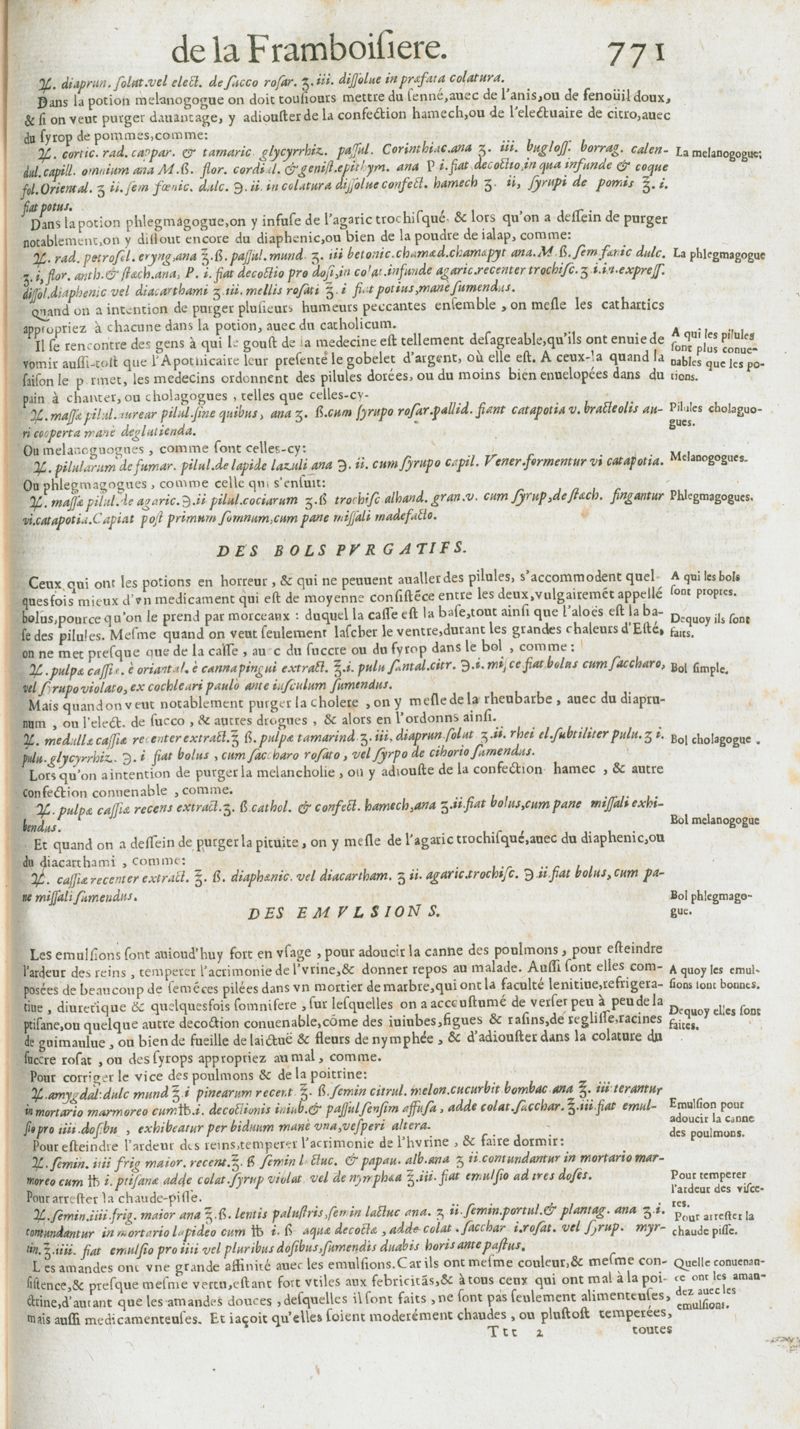 de la Framboiſiere. 771
♃. diaprun. ſolut.vel elect. de ſucco roſar. ʒ. iii. diſſolue in præfata colatura.
Dans la potion melanogogue on doit touſiours mettre du ſenné,auec de l'anis,ou de fenouïl doux,
& ſi on veut purger dauantage, y adiouſter de la confection hamech,ou de l'electuaire de citro,auec
du ſyrop de pommes,comme:
♃. cortic. rad. cappar. & tamaric glycyrrhiz. paſſul. Corinthiac.ana ʒ. iii. bugloſſ. borrag. calen-
La melanogogue;
dul.capill. omnium ana M.ß. flor. cordial. & geniſt.epithym. ana P i.fiat decoctio,in qua infunde & coque
fol.Oriental. ʒ ii. ſem fœnic. dulc. ℈. ii. in colatura diſſolue confect. hamech ʒ. ii, ſyrupi de pomis ℥. i.
fiat potus.
Dans la potion phlegmagogue,on y infuſe de l'agaric trochiſqué. & lors qu'on a deſſein de purger
notablement,on y diſſout encore du diaphenic,ou bien de la poudre de ialap, comme:
♃. rad. petroſel. eryng,ana ℥.ß. paſſul. mund. ʒ. iii betonic.chamæd.chamæpyt ana.M.ß.ſem.fænic dulc.
La phlegmagogue
ʒ. i, flor. anth.& ſtæch.ana, P. i. fiat decoctio pro doſi,in colat.infunde agaric.recenter trochiſc. ʒ i.in.expreſſ.
diſſol.diaphenic vel diacarthami ʒ iii. mellis roſati ℥ i fiat potius,mane ſumendus.
Quand on a intention de purger pluſieurs humeurs peccantes enſemble , on meſle les cathartics
appropriez à chacune dans la potion, auec du catholicum.
Il ſe rencontre des gens à qui le gouſt de la medecine eſt tellement deſagreable,qu'ils ont enuie de
A qui les pilules
vomir auſſi-toſt que l'Apothicaire leur preſente le gobelet d'argent, où elle eſt. A ceux-la quand la
ſont plus conue-
nables que les po-
faiſon le permet, les medecins ordonnent des pilules dorées, ou du moins bien enuelopées dans du
tions.
pain à chanter, ou cholagogues , telles que celles-cy-
♃. maſſæ pilul. aureær pilul.ſine quibus, ana ʒ. ß.cum ſyrupo roſar.pallid. fiant catapotia v. bracteolis au-
Pilules cholaguo-
gues.
ri cooperta mane deglutienda.
Ou melanogogues , comme ſont celles-cy:
♃. pilularum de fumar. pilul.de lapide lazuli ana ℈. ii. cum ſyrupo capil. Vener.formentur vi catapotia.
Melanogogues.
Ou phlegmagogues , comme celle qui s'enſuit:
♃. maſſæ pilul.de agaric.℈.ii pilul.cociarum ʒ.ß trochiſc alhand. gran.v. cum ſyrup,de ſtæch. fingantur
Phlegmagogues.
vi.catapotia.Capiat poſt primum ſomnum,cum pane miſſali madefacto.
DES BOLS PVRGATIFS.
Ceux qui ont les potions en horreur , & qui ne peuuent aualler des pilules, s'accommodent quel-
A qui les bols
quesfois mieux d'vn medicament qui eſt de moyenne conſiſtẽce entre les deux,vulgairemẽt appellé
ſont propres.
bolus,pource qu'on le prend par morceaux : duquel la caſſe eſt la baſe,tout ainſi que l'aloës eſt la ba-
Dequoy ils ſont
ſe des pilules. Meſme quand on veut ſeulement laſcher le ventre,durant les grandes chaleurs d'Eſté,
faits.
on ne met preſque que de la caſſe , auec du ſuccre ou du ſyrop dans le bol , comme :
♃.pulpæ caſſiæ. è oriantal. è canna pingui extract. ℥.i. pulu ſantal.citr. ℈.i. miſce fiat bolus cum ſaccharo,
Bol ſimple.
vel ſyrupo violato, ex cochleari paulo ante iuſculum ſumendus.
Mais quand on veut notablement purger la cholere , on y meſle de la rheubarbe , auec du diapru-
num , ou l'elect. de ſucco , & autres drogues , & alors en l'ordonns ainſi.
♃. medullæ caſſiæ recenter extract.℥ ß. pulpæ tamarind ʒ. iii, diaprun ſolut ʒ.ii. rhei el.ſubtiliter pulu. ʒ i.
Bol cholagogue .
pulu.glycyrrhiz. ℈. i fiat bolus , cum ſaccharo roſato , vel ſyrpo de cihorio ſumendus.
Lors qu'on a intention de purger la melancholie , on y adiouſte de la confection hamec , & autre
confection conuenable , comme.
♃. pulpæ caſſiæ recens extract.ʒ. ß cathol. & confect. hamech,ana ʒ.ii.fiat bolus,cum pane miſſali exhi-
bendus.
Bol melanogogue
Et quand on a deſſein de purger la pituite , on y meſle de l'agaric trochiſqué,auec du diaphenic,ou
du diacarthami , comme:
♃. caſſiæ recenter extract. ℥. ß. diaphænic. vel diacartham. ʒ ii. agaric.trochiſc. ℈ ii.fiat bolus, cum pa-
ne miſſali ſumendus.
Bol phlegmago-
gue.
DES EMVLSIONS.
Les emulſions ſont auioud'huy fort en vſage , pour adoucir la canne des poulmons , pour eſteindre
l'ardeur des reins , temperer l'acrimonie de l'vrine,& donner repos au malade. Auſſi ſont elles com-
A quoy les emul-
poſées de beaucoup de ſemẽces pilées dans vn mortier de marbre,qui ont la faculté lenitiue,refrigera-
ſions ſont bonnes.
tiue , diuretique & quelquesfois ſomnifere , ſur leſquelles on a accouſtumé de verſer peu à peu de la
Dequoy elles ſont
ptiſane,ou quelque autre decoction conuenable,cõme des iuiubes,figues & raſins,de regliſſe,racines
faites.
de guimaulue , ou bien de fueille de laictuë & fleurs de nymphée , & d'adiouſter dans la colature du
ſuccre roſat , ou des ſyrops appropriez au mal , comme.
Pour corriger le vice des poulmons & de la poitrine:
♃.amygdal.dulc mund ℥ i pinearum recent. ℥. ß.ſemin citrul. melon.cucurbit bombac ana ℥. iii terantur
in mortario marmoreo cum ℔.i. decoctionis iuiub.& paſſul ſenſim affuſa , adde colat.ſacchar. ℥.iii.fiat emul-
Emulſion pour
ſio pro iiii.doſibu , exhibeatur per biduum mane vna,veſperi altera.
adoucir la canne
des poulmons.
Pour eſteindre l'ardeur des reins,temperer l'acrimonie de l'hvrine , & faire dormir:
♃.ſemin. iiii frig maior. recent.℥. ß ſemin lactuc. & papau. alb.ana ʒ ii.contundantur in mortario mar-
moreo cum ℔ i. ptiſanæ adde colat.ſyrup violat vel de nymphæa ℥.iii. fiat emulſio ad tres doſes.
Pour temperer
l'ardeur des viſce-
res.
Pour arreſter la chaude-piſſe.
♃.ſemin.iiii.frig. maior ana ℥.ß. lentis paluſtris,ſemin lactuc ana. ʒ ii.ſemin.portul.& plantag. ana ʒ.i.
Pour arreſter la
contundantur in mortario lapideo cum ℔ i. ß aquæ decoctæ , adde colat . ſacchar i.roſat. vel ſyrup. myr-
chaude piſſe.
tin.℥.iiii. fiat emulſio pro iiii vel pluribus doſibus,ſumendis duabis horis ante paſtus.
Les amandes ont vne grande affinité auec les emulſions.Car ils ont meſme couleur,& meſme con-
Quelle conuenan-
ſiſtence,& preſque meſme vertu,eſtant fort vtiles aux febricitãs,& à tous ceux qui ont mal à la poi-
ce ont les aman-
ctrine,d'autant que les amandes douces , deſquelles il ſont faits , ne ſont pas ſeulement alimenteuſes,
dez auec les
emulſions.
mais auſſi medicamenteuſes. Et iaçoit qu'elles ſoient moderément chaudes , ou pluſtoſt temperées,
Ttt 2 toutes